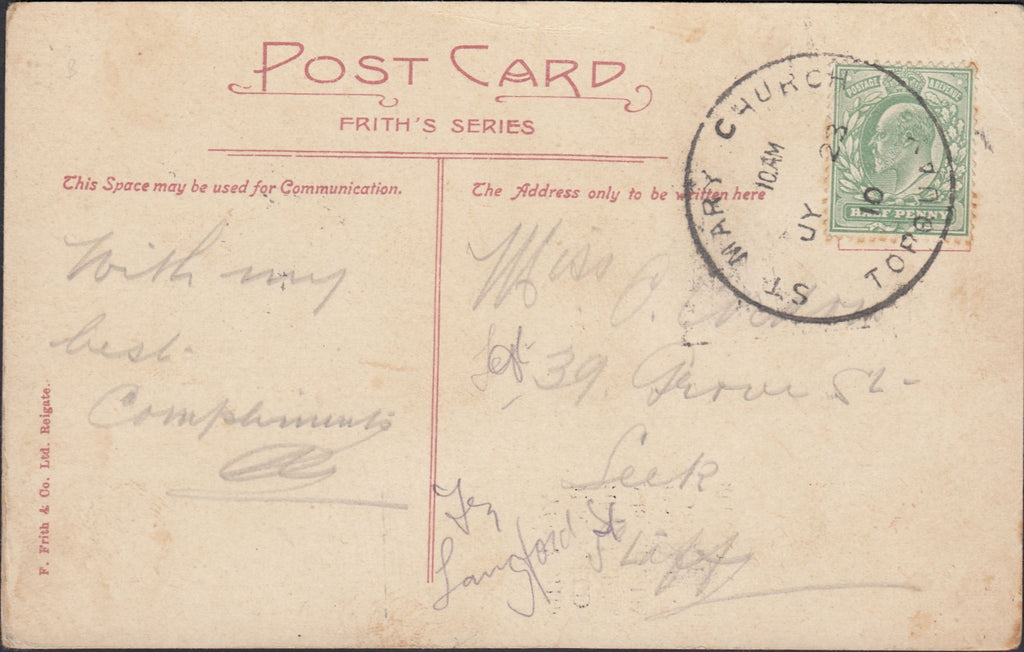 POST CARD
FRITH'S SERIES
This Space may be used for Communication.
The Address only to be written here
ST MARY CHURCH TORQUAY
10 AM
JY 23
10
POSTAGE & REVENUE
HALF PENNY
With my
best
Compliments
Miss
39. Grove St-
Leek
Staff
Try
Langford St
F. Frith & Co. Ltd. Reigate.